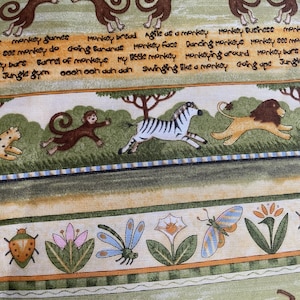 monkey games Monkey bread Agile as a monkey Monkey business monkey
monkey see monkey do Going Bananas Monkey face Dancing monkeys Monkey see mon
monkey bars Barrel of monkeys My little monkey Monkeying around Monkey bars
Jungle gym oooh ooh aah aah Swinging like a monkey Going ape! Jungle